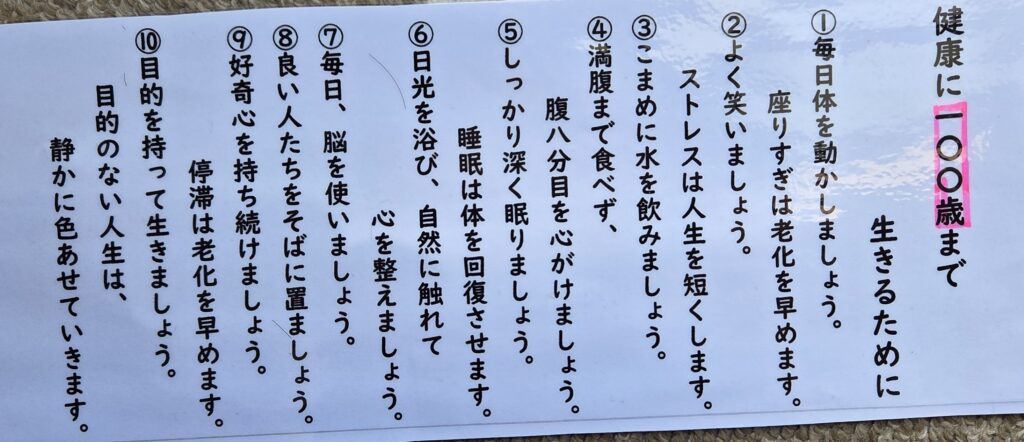 健康に一〇〇歳まで
生きるために
①毎日体を動かしましょう。
座りすぎは老化を早めます。
②よく笑いましょう。
ストレスは人生を短くします。
③こまめに水を飲みましょう。
④満腹まで食べず、
腹八分目を心がけましょう。
⑤しっかり深く眠りましょう。
睡眠は体を回復させます。
⑥日光を浴び、自然に触れて
心を整えましょう。
⑦毎日、脳を使いましょう。
⑧良い人たちをそばに置ましょう。
⑨好奇心を持ち続けましょう。
停滞は老化を早めます。
⑩目的を持って生きましょう。
目的のない人生は、
静かに色あせていきます。